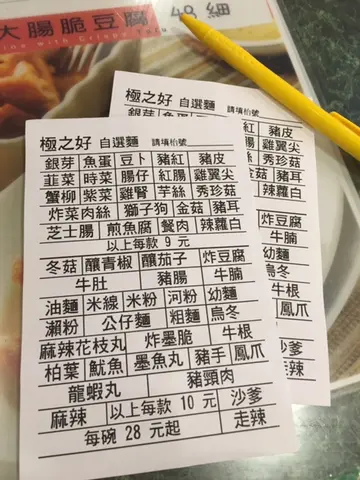 大腸脆豆腐
極之好 自選麵 請填枱號
銀芽 魚蛋 豆卜 豬紅 豬皮
韮菜 時菜 腸仔 紅腸 雞翼尖
蟹柳 紫菜 雞腎 芋絲 秀珍菇
炸菜肉絲 獅子狗 金菇 豬耳
芝士腸 煎魚腐 餐肉 辣蘿白
以上每款 9 元
冬菇 釀青椒 釀茄子 炸豆腐
牛肚 豬腸 牛腩
油麵 米線 米粉 河粉 幼麵
瀨粉 公仔麵 粗麵 烏冬
麻辣花枝丸 炸墨脆 牛根
柏葉 魷魚 墨魚丸 豬手 鳳爪
龍蝦丸 豬頸肉
麻辣 以上每款 10 元 沙爹
每碗 28 元起 走辣
極之好 自選麵 請填枱號
豬皮
雞翼尖
秀珍菇
豬耳
辣蘿白
炸豆腐
牛腩
幼麵
烏冬
牛根
鳳爪
沙爹
走辣